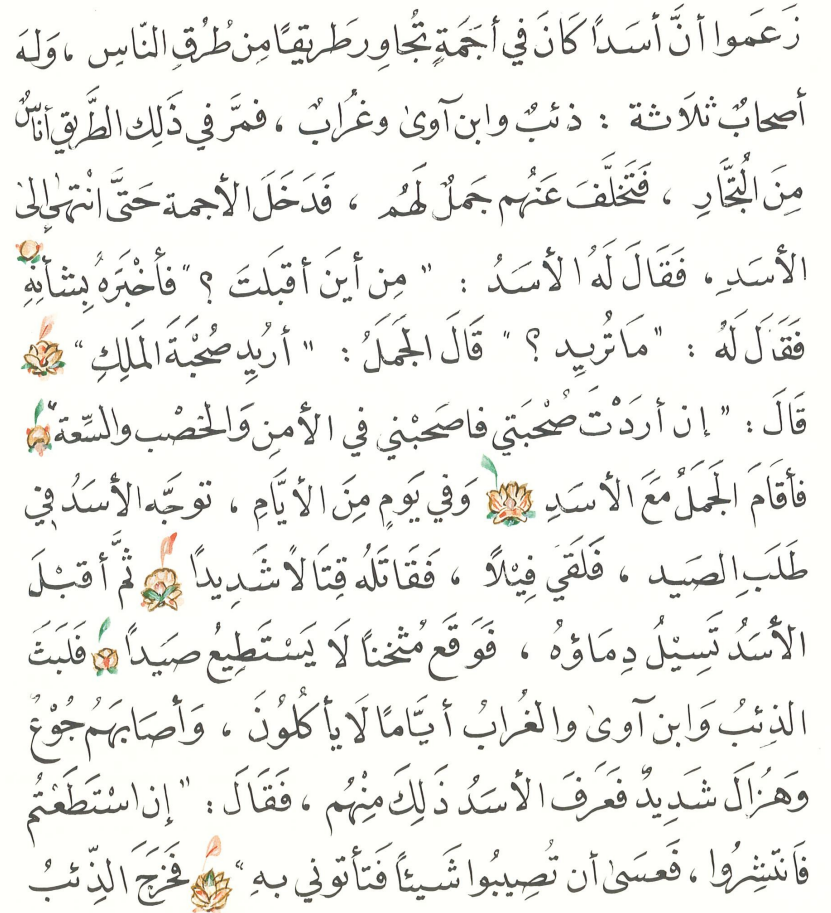 زَعَموا أنَّ أسَداً كَانَ في أجَمَةٍ تُجَاوِر طَريقًا مِن طُرُقِ النّاسِ ، وَلهَ
أصحابٌ ثلَاثة : ذئبٌ وابن آوىٰ وغُرابٌ ، فمرَّ في ذَلِك الطَّريق أناسٌ
مِنَ التُجَّارِ ، فَتَخلَّفَ عَنهُم جَملٌ لَهُم ، فَدَخَلَ الأجمة حَتَّى انْتهىٰ إلىٰ
الأسَدِ ، فَقَالَ لَهُ الأسَدُ : " مِن أينَ أقبَلتَ ؟ " فأخْبَرَهُ بِشأنِهِ
فَقَالَ لَهُ : " مَا تُريد ؟ " قَالَ الجَمَلُ : " أريُد صُحْبَةَ المَلِكِ "
قَالَ : " إن أردْتَ صُحْبَتي فاصحَبْني في الأمنِ وَالخصْب والسّعة "
فأقَامَ الجَمَلُ مَعَ الأسَدِ وَفي يَومٍ مِنَ الأيَّامِ ، توجَّه الأسَدُ في
طَلَبِ الصَيد ، فَلَقيَ فِيْلاً ، فَقَاتَلهُ قِتَالاً شَدِيداً ثُمَّ أقبْلَ
الأسَدُ تَسِيْلُ دِمَاؤهُ ، فَوَقَع مُثخناً لَا يَسْتَطِيعُ صَيَداً فَلَبثَ
الذِئبُ وَابن آوىٰ والغُرابُ أيَّامًا لَا يأكلُونَ ، وَأصَابهَمُ جُوْعٌ
وَهُزالَ شَدِيدٌ فَعَرفَ الأسَدُ ذَلِكَ مِنْهُم ، فَقَالَ : " إن اسْتَطَعْتُم
فَانتَشِرُوا ، فَعسَىٰ أن تُصِيبُوا شَيئاً فَتأتوني بهِ " فَخَرَجَ الذِّئبُ